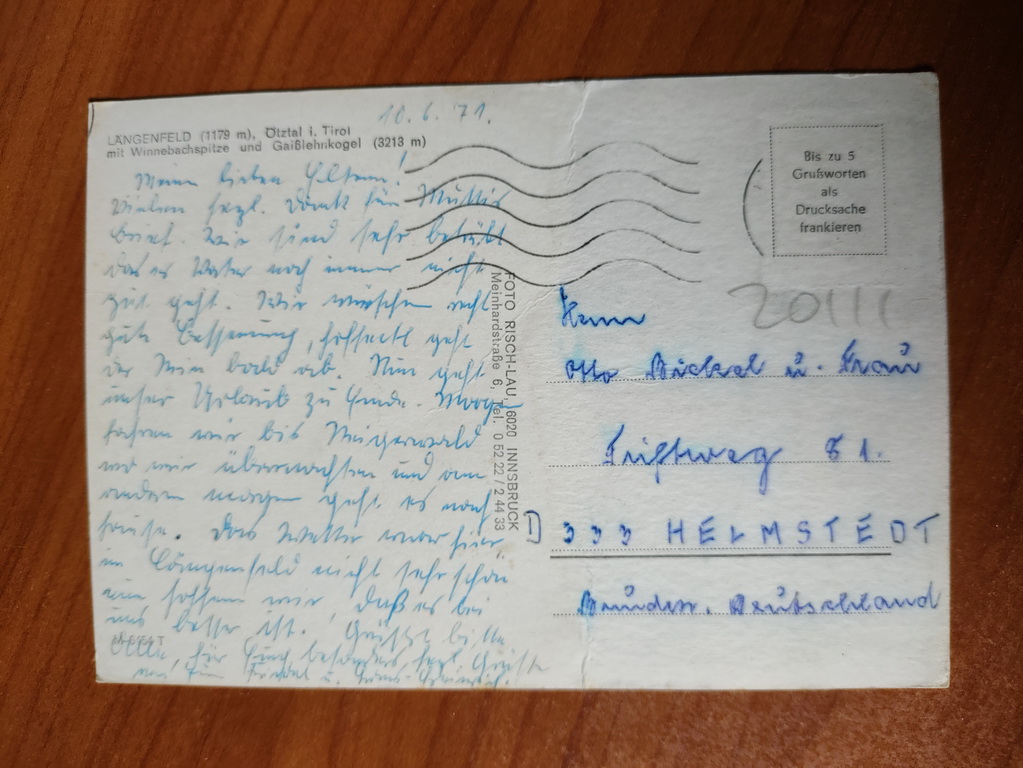 10.6.71.
LÄNGENFELD (1179 m), Ötztal i. Tirol
mit Winnebachspitze und Gaißlehnkogel (3213 m)
Meine lieben Eltern!
Vielen herzl. Dank für Muttis
Brief. Wir sind sehr betrübt
das es Vater noch immer nicht
gut geht. Wir wünschen recht
gute Besserung, hoffentl. geht
bald ab. Nun geht
unser Urlaub zu Ende. Morgen
fahren wir bis
wo wir übernachten und am
andern morgen geht es nach
hause. Das Wetter war hier
in Längenfeld nicht sehr schön
nun hoffen wir, daß es bei
uns besser ist. Grüßt bitte
alle, für Euch besonders herzl. Grüße
von u.
FOTO RISCH-LAU, 6020 INNSBRUCK
Meinhardstraße 6, Tel. 0 52 22 / 2 44 33
Bis zu 5
Grußworten
als
Drucksache
frankieren
20111
Herrn
Otto Bickel u. Frau
Triftweg 81.
D 333 HELMSTEDT
Bundesr. Deutschland